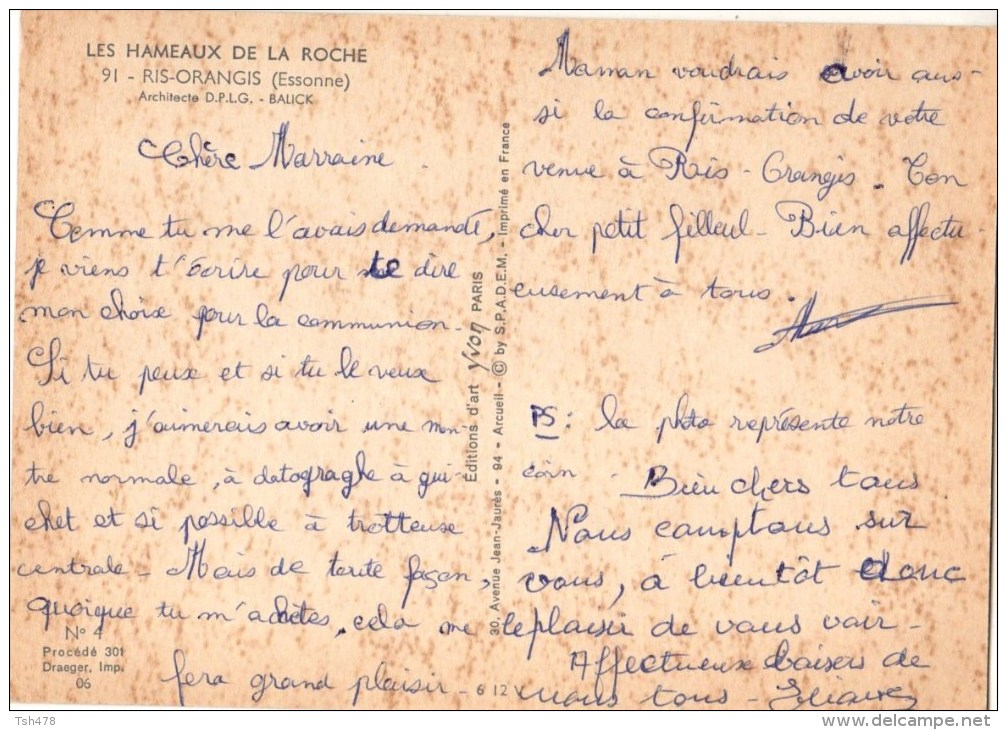 LES HAMEAUX DE LA ROCHE
91 - RIS-ORANGIS (Essonne)
Architecte D.P.L.G. - BALICK
Chère Marraine
Comme tu me l'avais demandé,
je viens t'écrire pour te dire
mon choix pour la communion.
Si tu peux et si tu le veux
bien, j'aimerais avoir une mon-
tre normale, à datographe à gui-
chet et si possible à trotteuse
centrale - Mais de toute façon,
quoique tu m'achètes, cela me
fera grand plaisir -
N° 4
Procédé 301
Draeger, Imp.
06
Éditions d'art Yvon PARIS
30, Avenue Jean-Jaurès - 94 - Arcueil - © by S.P.A.D.E.M. - Imprimé en France
6 12
Maman voudrais avoir aus-
si la confirmation de votre
venue à Ris-Orangis. Ton
cher petit filleul - Bien affectu-
eusement à tous.
PS: la photo représente notre
coin -
Bien chers tous
Nous comptons sur
vous, à bientôt donc
le plaisir de vous voir -
Affectueux baisers de
nous tous - Eliane
Tsh478
delcampe.net